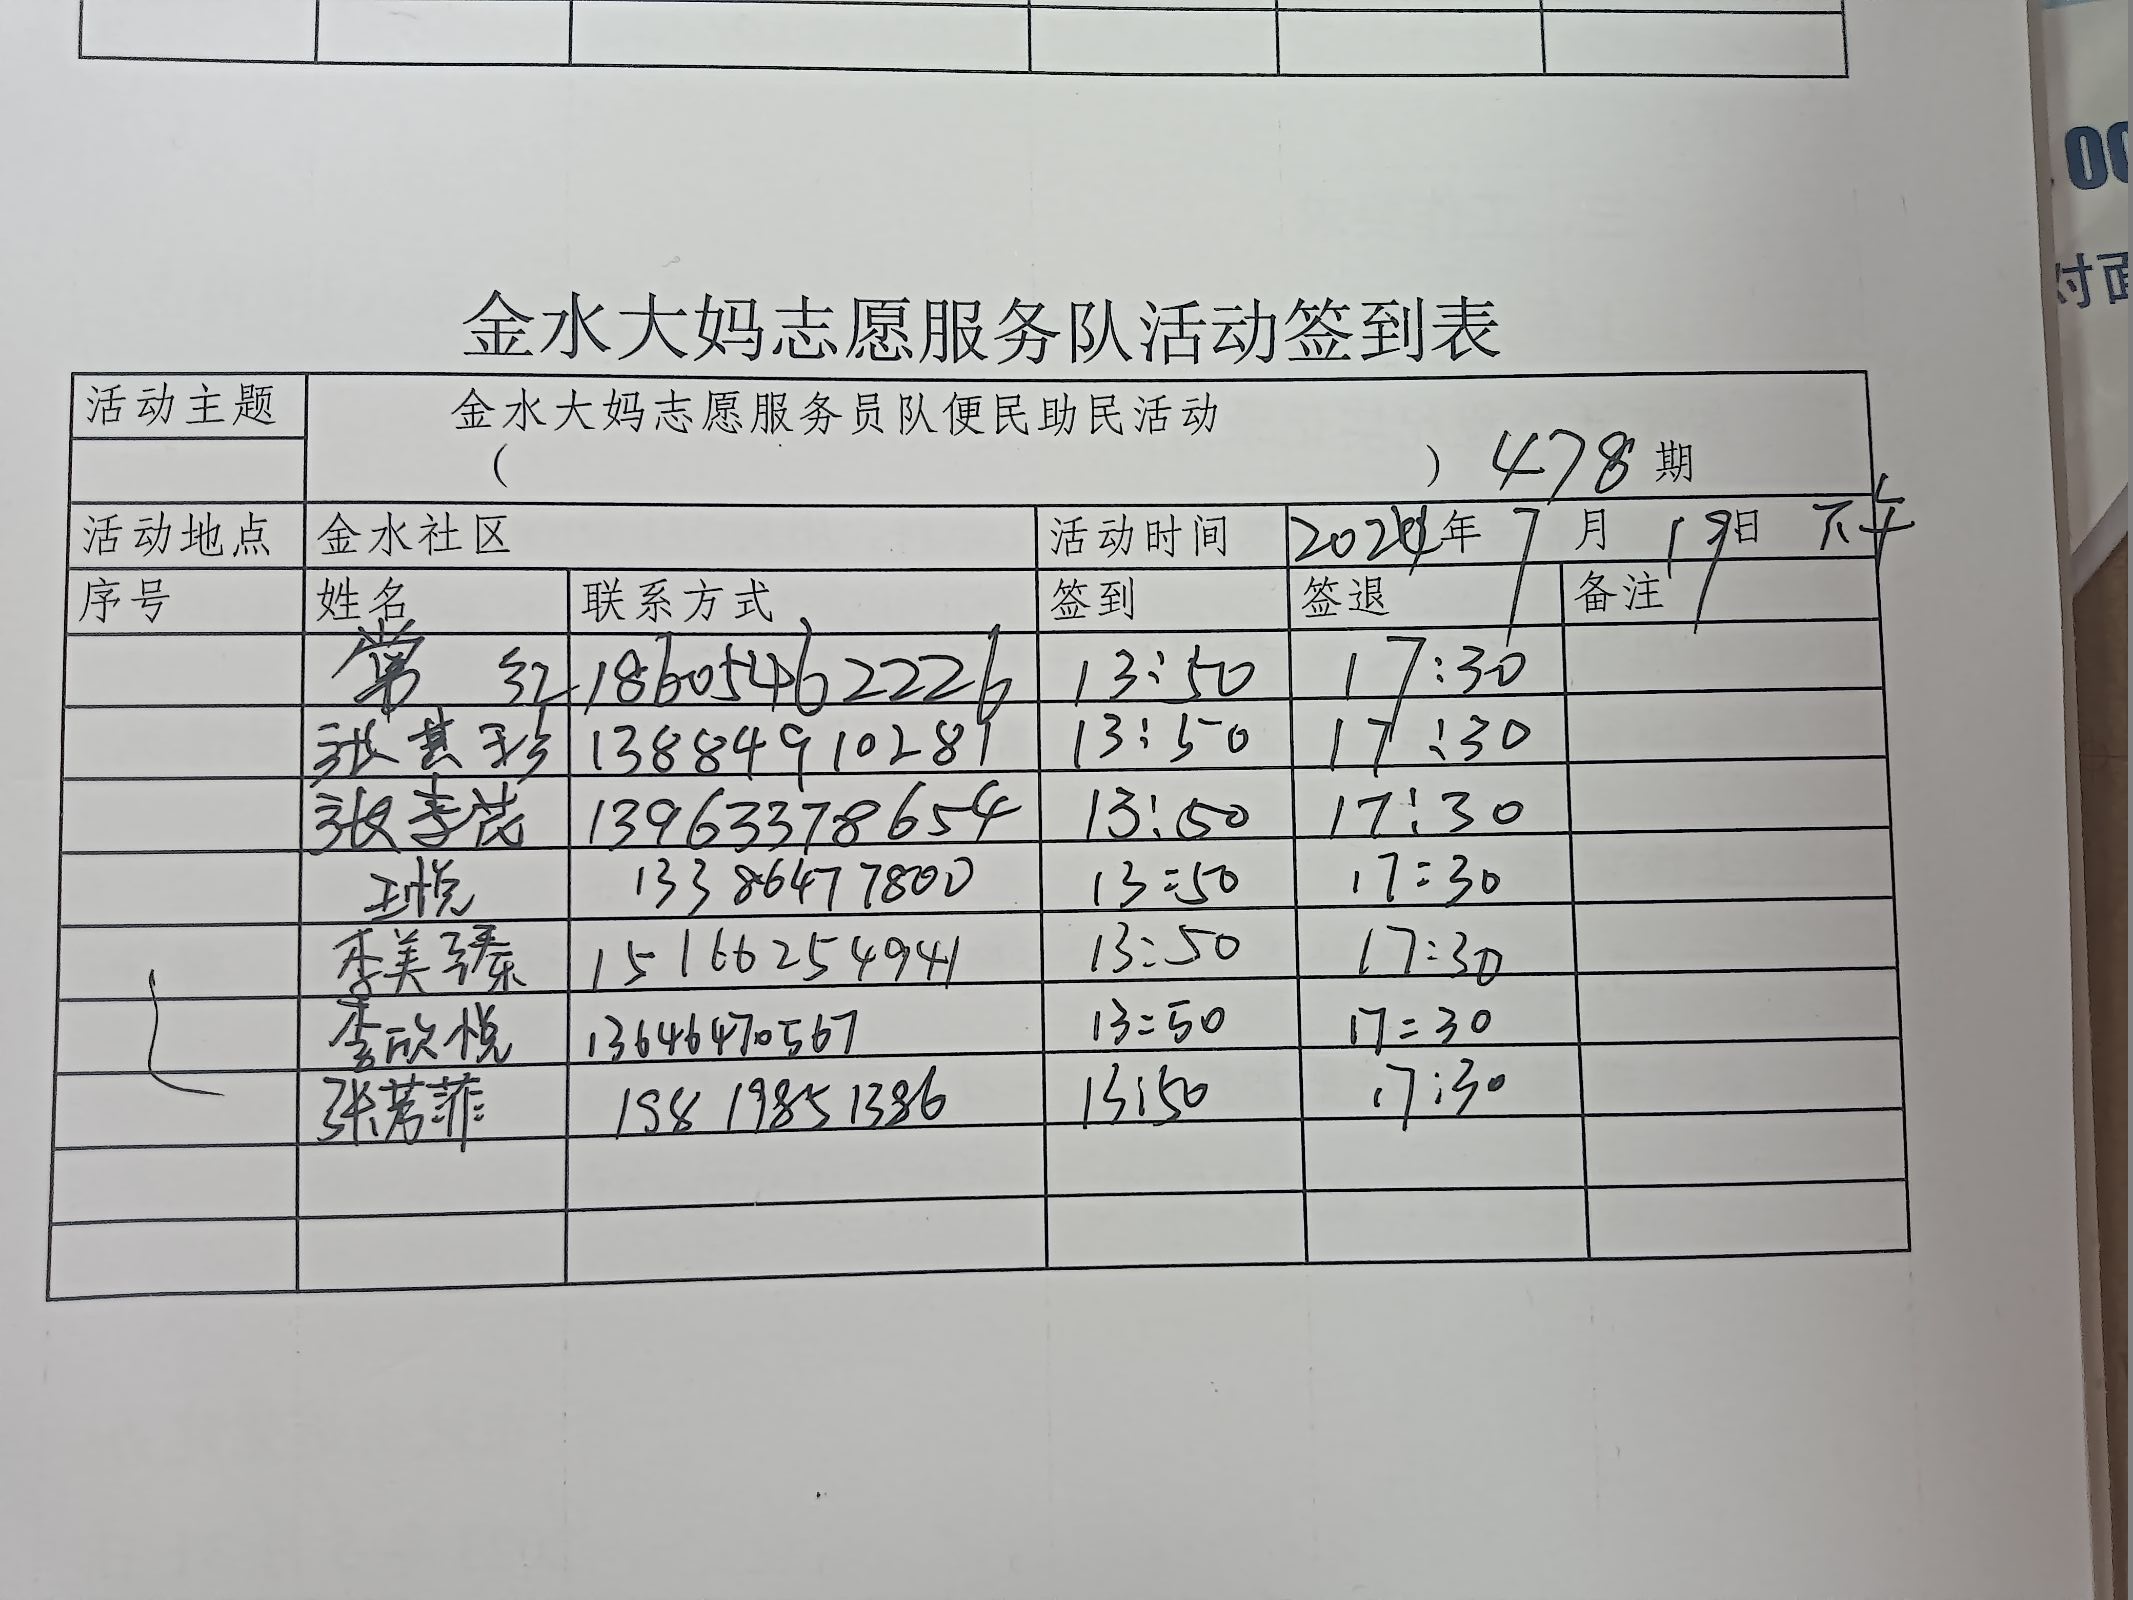 00
对面
金水大妈志愿服务队活动签到表
活动主题 金水大妈志愿服务员队便民助民活动
( ) 478期
活动地点 金水社区 活动时间 2024年7月19日 下午
序号 姓名 联系方式 签到 签退 备注
常红 18605462226 13:50 17:30
张其珍 13884910281 13:50 17:30
张李茂 13963378654 13:50 17:30
王悦 13386477800 13:50 17:30
李美臻 15166254941 13:50 17:30
李欣悦 13646470567 13:50 17:30
张芳菲 19819851386 13:50 17:30